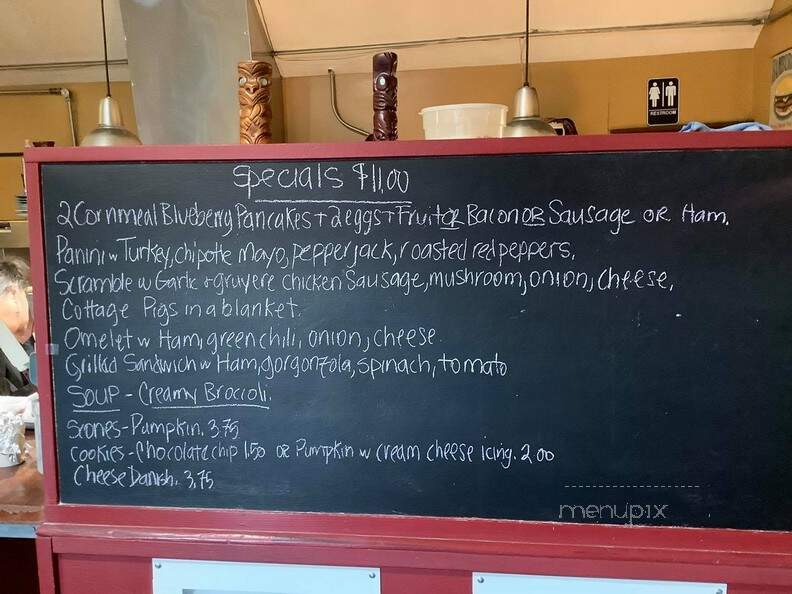 RESTROOM
Specials $11.00
2 Cornmeal Blueberry Pancakes + 2 eggs + Fruit or Bacon OR Sausage OR Ham.
Panini w Turkey, chipotle Mayo, pepper jack, roasted red peppers.
Scramble w Garlic + gruyere chicken Sausage, mushroom, onion, cheese.
Cottage Pigs in a blanket.
Omelet w Ham, green chili, onion, cheese
Grilled Sandwich w Ham, gorgonzola, spinach, tomato
SOUP - Creamy Brocioli.
Scones - Pumpkin. 3.75
Cookies - Chocolate chip 1.50 or Pumpkin w cream cheese icing. 2.00
Cheese Danish. 3.75
menupix